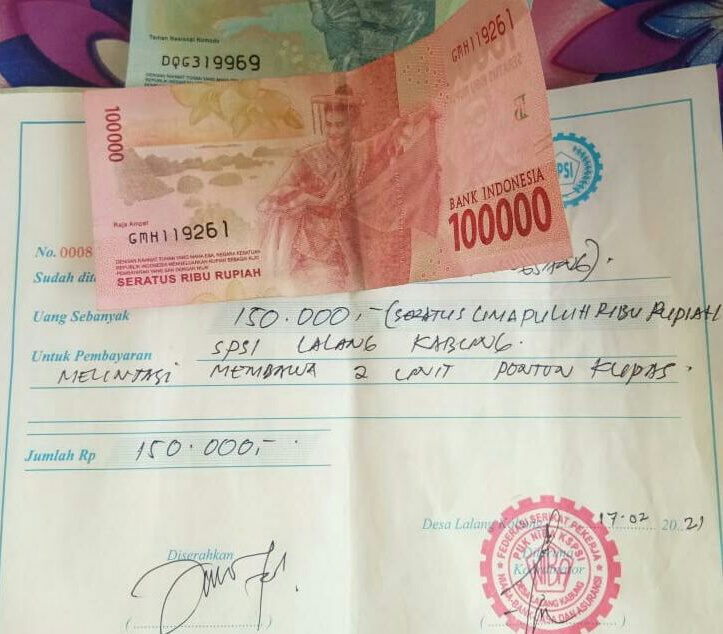 Taman Nasional Komodo
DQG319969
GMH119261
100000
Raja Ampat
GMH119261
DENGAN RAHMAT TUHAN YANG MAHA ESA, NEGARA KESATUAN
REPUBLIK INDONESIA MENGELUARKAN RUPIAH SEBAGAI ALAT
PEMBAYARAN YANG SAH DENGAN NILAI
SERATUS RIBU RUPIAH
BANK INDONESIA
100000
PSI
No. 0008
Sudah dit
Uang Sebanyak 150.000,- (SERATUS LIMAPULUH RIBU RUPIAH
Untuk Pembayaran SPSI LALANG KABUNG.
MELINTASI MEMBAWA 2 UNIT PONTON KUPAS.
Jumlah Rp 150.000,-
Desa Lalang Kabung 17-02 2021
Diserahkan
Koordinator
FEDERASI SERIKAT PEKERJA
PUK NIBA KSPSI
DESA LALANG KABUNG
NIAGA-BANK JASA DAN ASURANSI